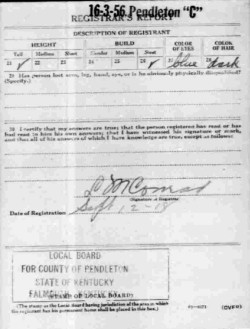 16-3-56 Pendleton "C"
REGISTRAR'S REPORT
DESCRIPTION OF REGISTRANT
HEIGHT BUILD COLOR OF EYES COLOR OF HAIR
Tall Medium Short Slender Medium Stout
21 22 23 24 25 26 27 Blue 28 Dark
29 Has person lost arm, leg, hand, eye, or is he obviously physically disqualified?
(Specify.)
30 I certify that my answers are true; that the person registered has read or has
had read to him his own answers; that I have witnessed his signature or mark,
and that all of his answers of which I have knowledge are true, except as follows:
Conrad
(Signature of Registrar)
Date of Registration Sept 12-18
LOCAL BOARD
FOR COUNTY OF PENDLETON
STATE OF KENTUCKY
(STAMP OF LOCAL BOARD)
(The stamp of the Local Board having jurisdiction of the area in which
the registrant has his permanent home shall be placed in this box.)
(OVER)